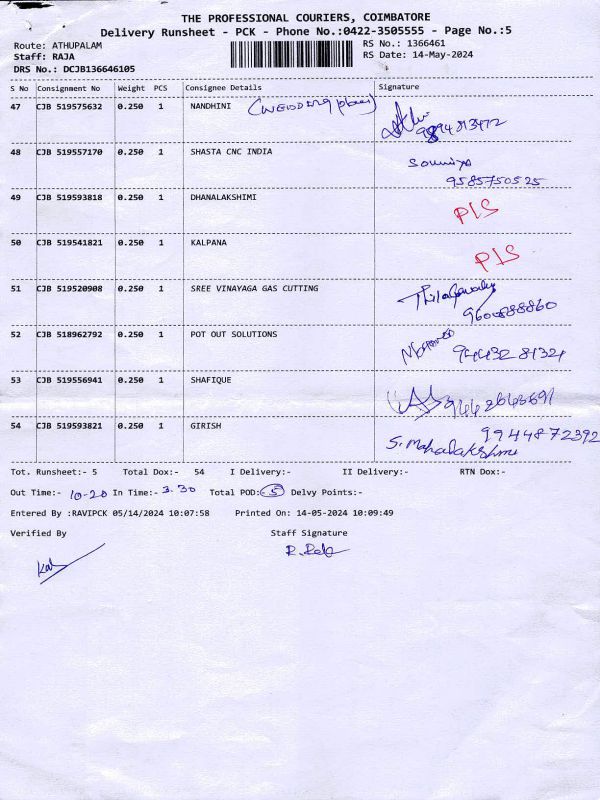 THE PROFESSIONAL COURIERS, COIMBATORE
Delivery Runsheet - PCK - Phone No.:0422-3505555 - Page No.:5
Route: ATHUPALAM RS No.: 1366461
Staff: RAJA RS Date: 14-May-2024
DRS No.: DCJB136646105
S No Consignment No Weight PCS Consignee Details Signature
47 CJB 519575632 0.250 1 NANDHINI (WEDDING 9894813472
48 CJB 519557170 0.250 1 SHASTA CNC INDIA Soumiya
9585750525
49 CJB 519593818 0.250 1 DHANALAKSHIMI P/S
50 CJB 519541821 0.250 1 KALPANA P/S
51 CJB 519520908 0.250 1 SREE VINAYAGA GAS CUTTING
9600888860
52 CJB 518962792 0.250 1 POT OUT SOLUTIONS
53 CJB 519556941 0.250 1 SHAFIQUE
54 CJB 519593821 0.250 1 GIRISH 9944872392
S. Mahalakshmi
Tot. Runsheet:- 5 Total Dox:- 54 I Delivery:- II Delivery:- RTN Dox:-
Out Time:- 10-20 In Time:- 3.30 Total POD:- 5 Delvy Points:-
Entered By :RAVIPCK 05/14/2024 10:07:58 Printed On: 14-05-2024 10:09:49
Verified By Staff Signature